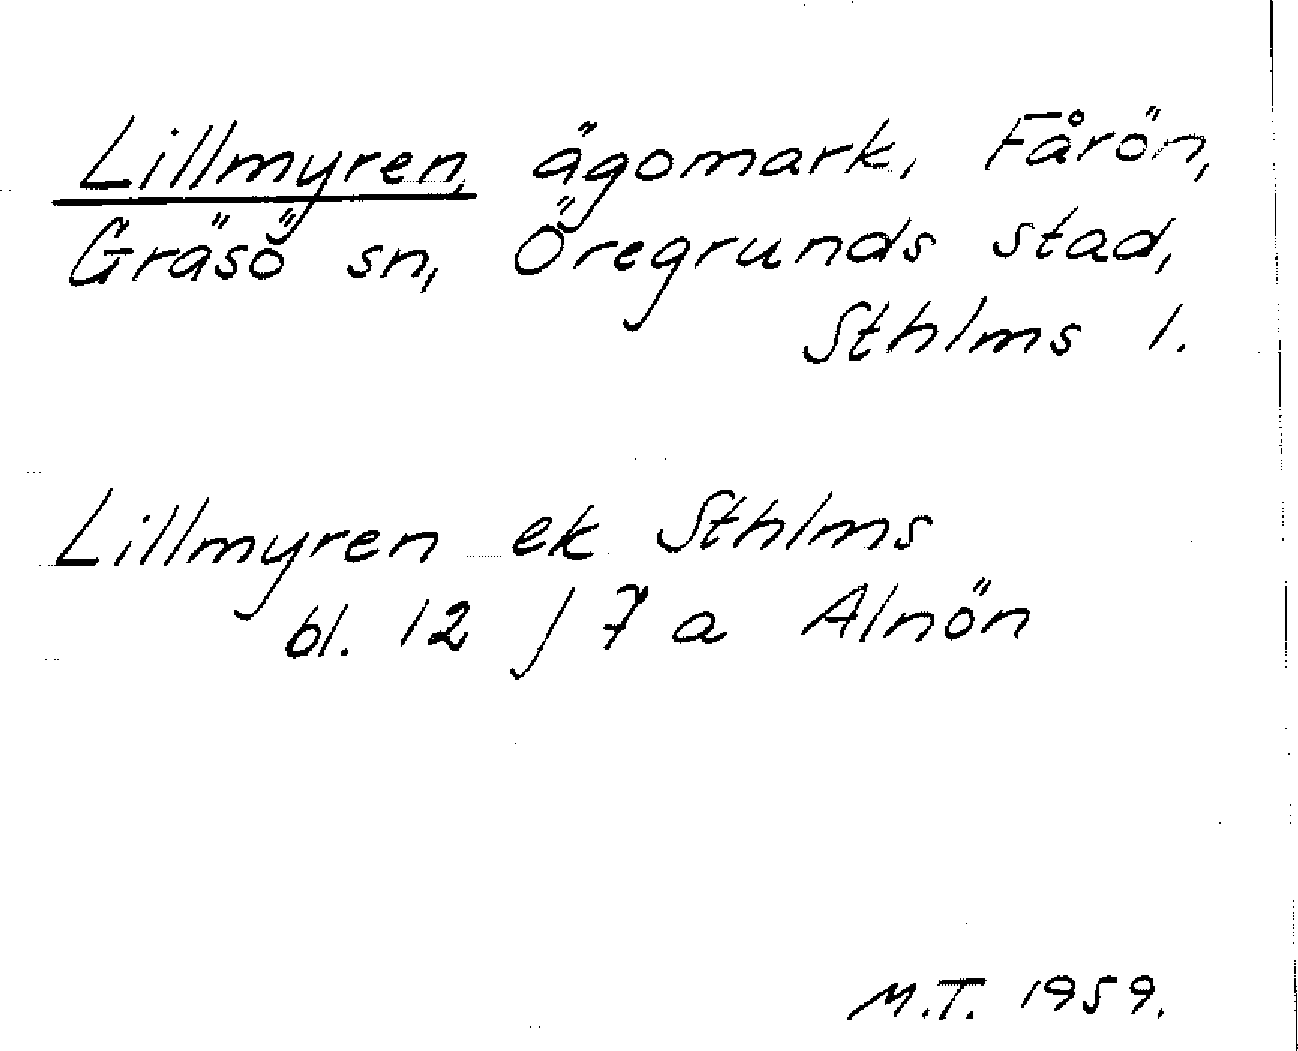 Lillmyren, ägomark, Fårön,
Gräsö sn, Öregrunds stad,
Sthlms l.
Lillmyren ek Sthlms
bl. 12 J 7 a Alnön
M.T. 1959.